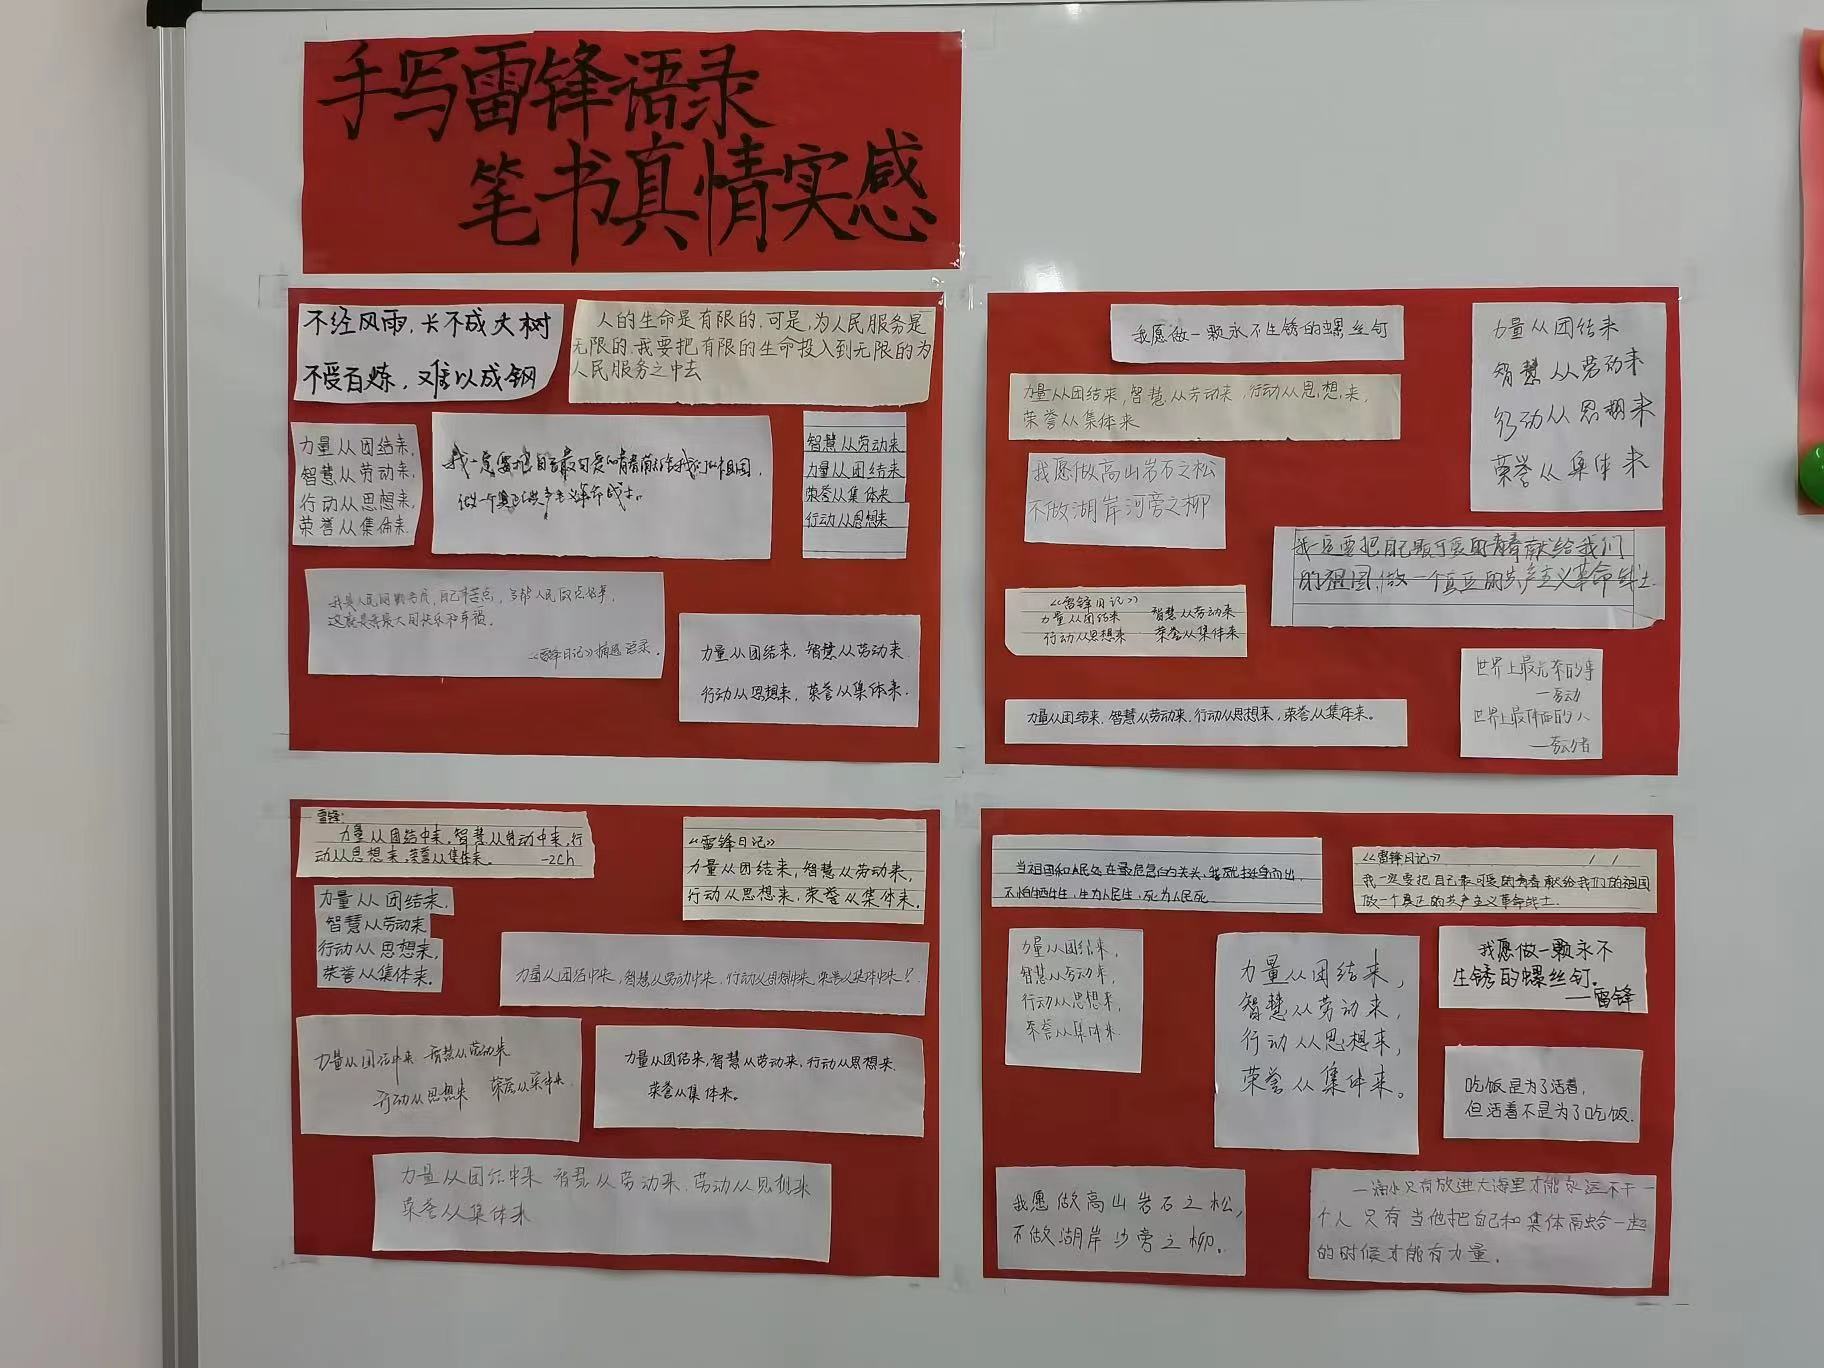 手写雷锋语录
笔书真情实感
不经风雨，长不成大树
不受百炼，难以成钢
人的生命是有限的，可是，为人民服务是
无限的，我要把有限的生命投入到无限的为
人民服务之中去
力量从团结来，
智慧从劳动来，
行动从思想来，
荣誉从集体来。
我一定要把自己最可爱的青春献给我们的祖国，
做一个真正的共产主义革命战士。
智慧从劳动来
力量从团结来
荣誉从集体来
行动从思想来
我是人民的勤务员，自己辛苦点，多帮人民做点好事，
这就是我最大的快乐和幸福。
《雷锋日记》摘选语录。
力量从团结来，智慧从劳动来
行动从思想来，荣誉从集体来.
我愿做一颗永不生锈的螺丝钉
力量从团结来，智慧从劳动来，行动从思想来，
荣誉从集体来
力量从团结来
智慧从劳动来
行动从思想来
荣誉从集体来
我愿做高山岩石之松
不做湖岸河旁之柳
我一定要把自己最可爱的青春献给我们
的祖国，做一个真正的共产主义革命战士.
《雷锋日记》
力量从团结来 智慧从劳动来
行动从思想来 荣誉从集体来
世界上最光荣的事
—劳动
世界上最体面的人
—劳动者
力量从团结来，智慧从劳动来，行动从思想来，荣誉从集体来。
雷锋：
力量从团结中来，智慧从劳动中来，行
动从思想来，荣誉从集体来。 —zch
《雷锋日记》
力量从团结来，智慧从劳动来，
行动从思想来，荣誉从集体来。
力量从团结来，
智慧从劳动来
行动从思想来，
荣誉从集体来。
力量从团结中来，智慧从劳动中来，行动从思想中来，荣誉从集体中来！
力量从团结中来 智慧从劳动来
行动从思想来 荣誉从集体来
力量从团结来，智慧从劳动来，行动从思想来
荣誉从集体来。
力量从团结中来 智慧从劳动来，劳动从思想来
荣誉从集体来
当祖国和人民处在最危急的关头，我就挺身而出，
不怕牺牲，生为人民生，死为人民死
《雷锋日记》 / /
我一定要把自己最可爱的青春献给我们的祖国
做一个真正的共产主义革命战士.
力量从团结来，
智慧从劳动来，
行动从思想来，
荣誉从集体来
力量从团结来，
智慧从劳动来，
行动从思想来，
荣誉从集体来。
我愿做一颗永不
生锈的螺丝钉。
—雷锋
吃饭是为了活着，
但活着不是为了吃饭.
我愿做高山岩石之松，
不做湖岸沙旁之柳。
一滴水只有放进大海里才能永远不干 一
个人 只有当他把自己和集体融合一起
的时候才能有力量。